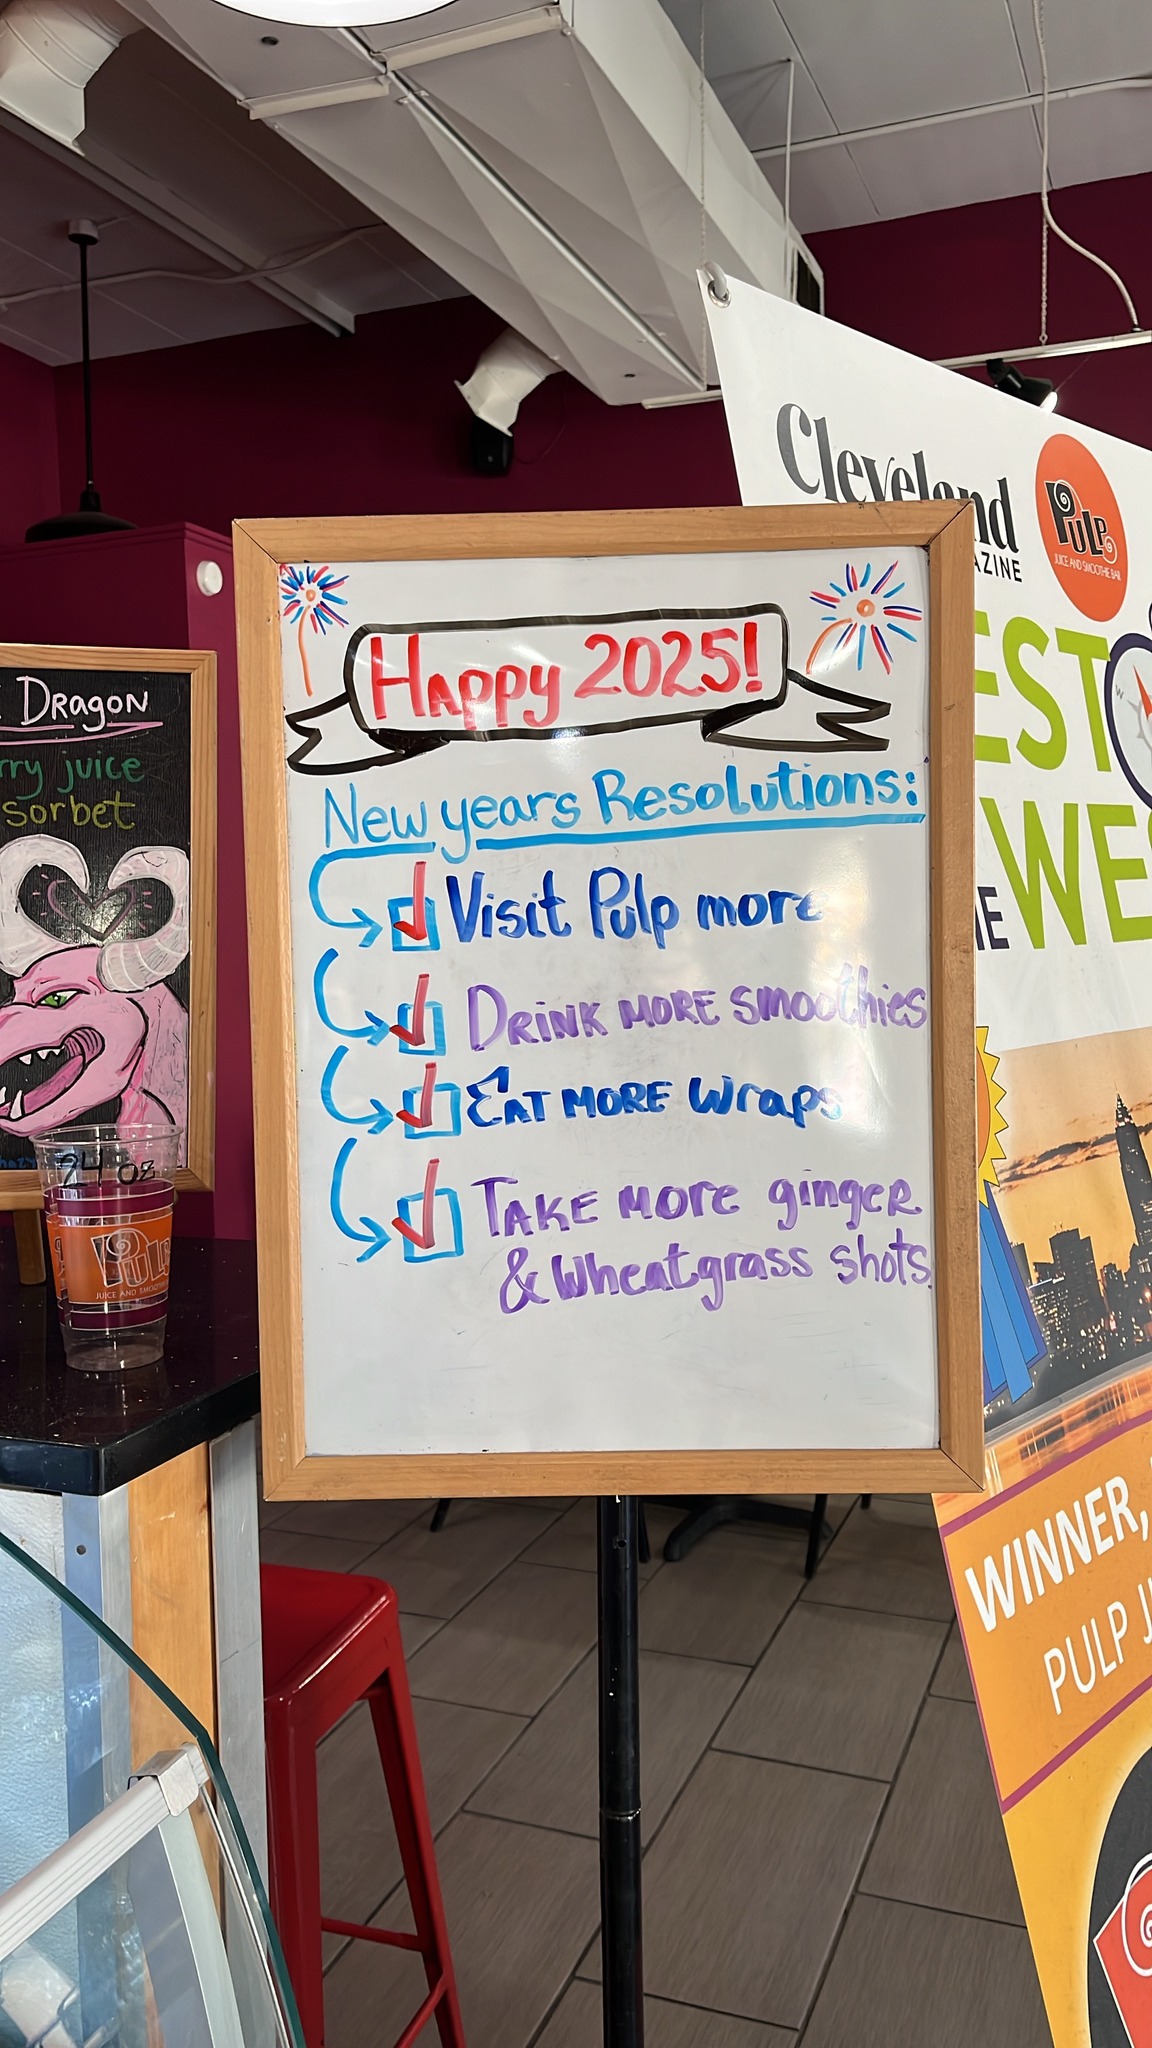 Happy 2025!
New years Resolutions:
Visit Pulp more
DRINK MORE smoothies
EAT MORE wraps
TAKE MORE ginger
& Wheatgrass shots
DRAGON
juice
sorbet
24 oz
PULP
JUICE AND
Cleveland
PULP
JUICE AND SMOOTHIE BAR
WINNER,
PULP